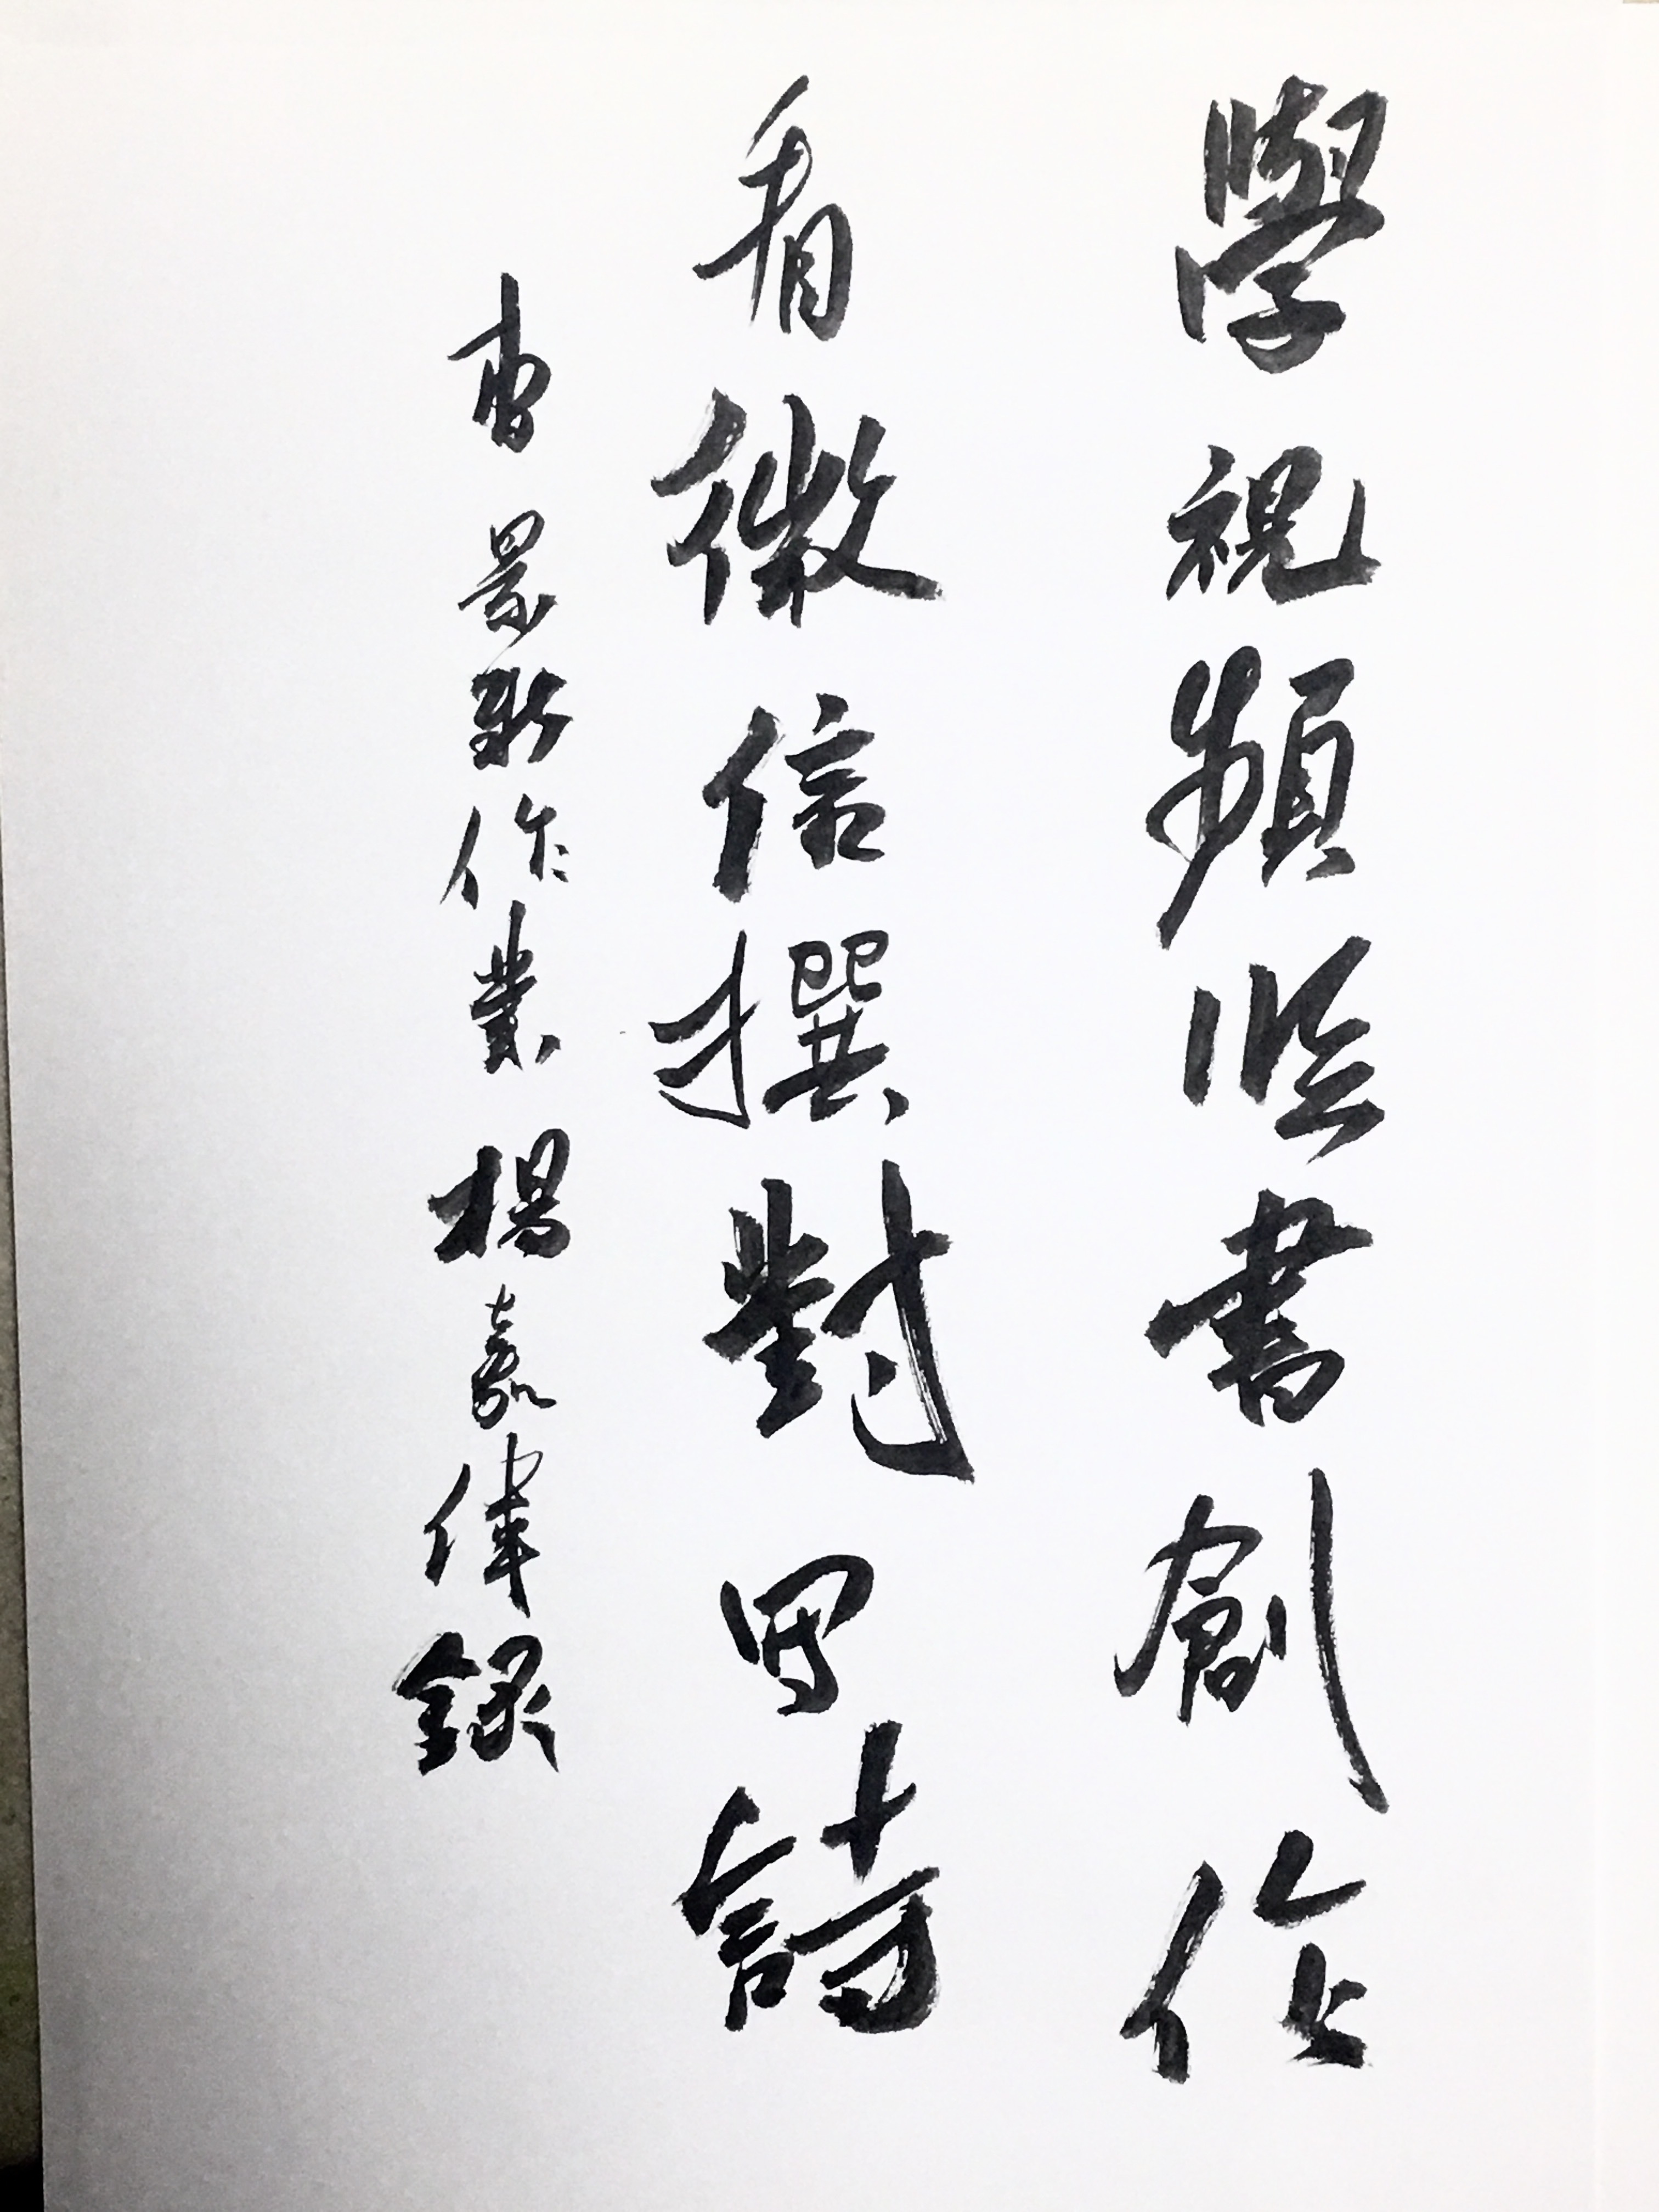 學視頻臨書創作
看微信撰對寫詩
曹景新作業 楊嘉偉錄